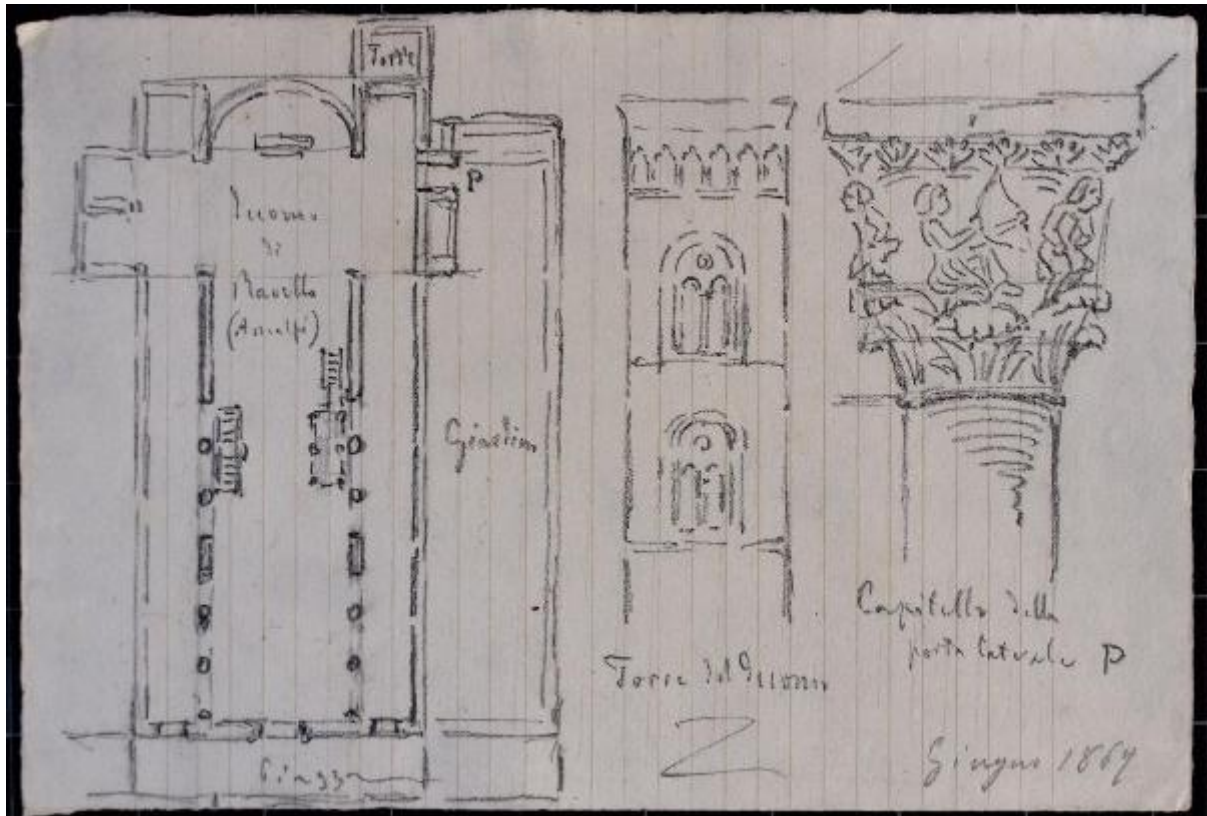 Torre
P
Duomo
di
Ravello
(Amalfi)
Giardino
Piazza
Torre del Duomo
Capitello della
porta laterale P
Giugno 1869